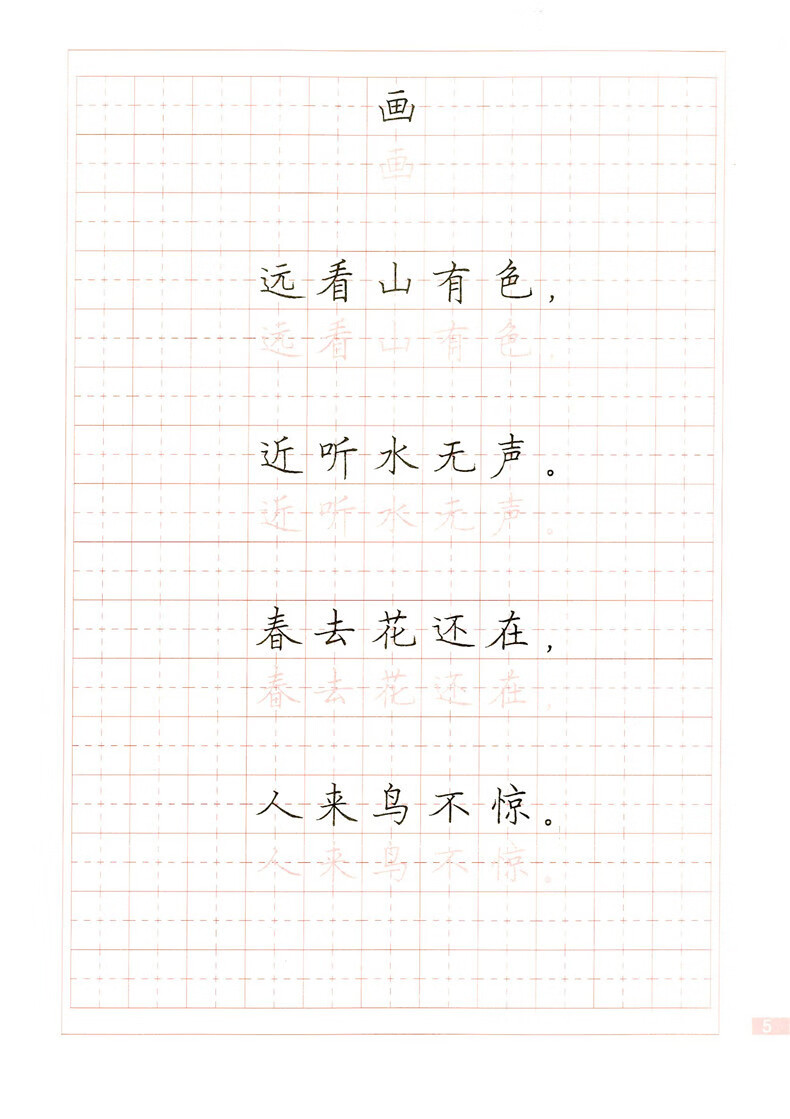 画
画
远看山有色，
远看山有色，
近听水无声。
近听水无声。
春去花还在，
春去花还在，
人来鸟不惊。
人来鸟不惊。
5